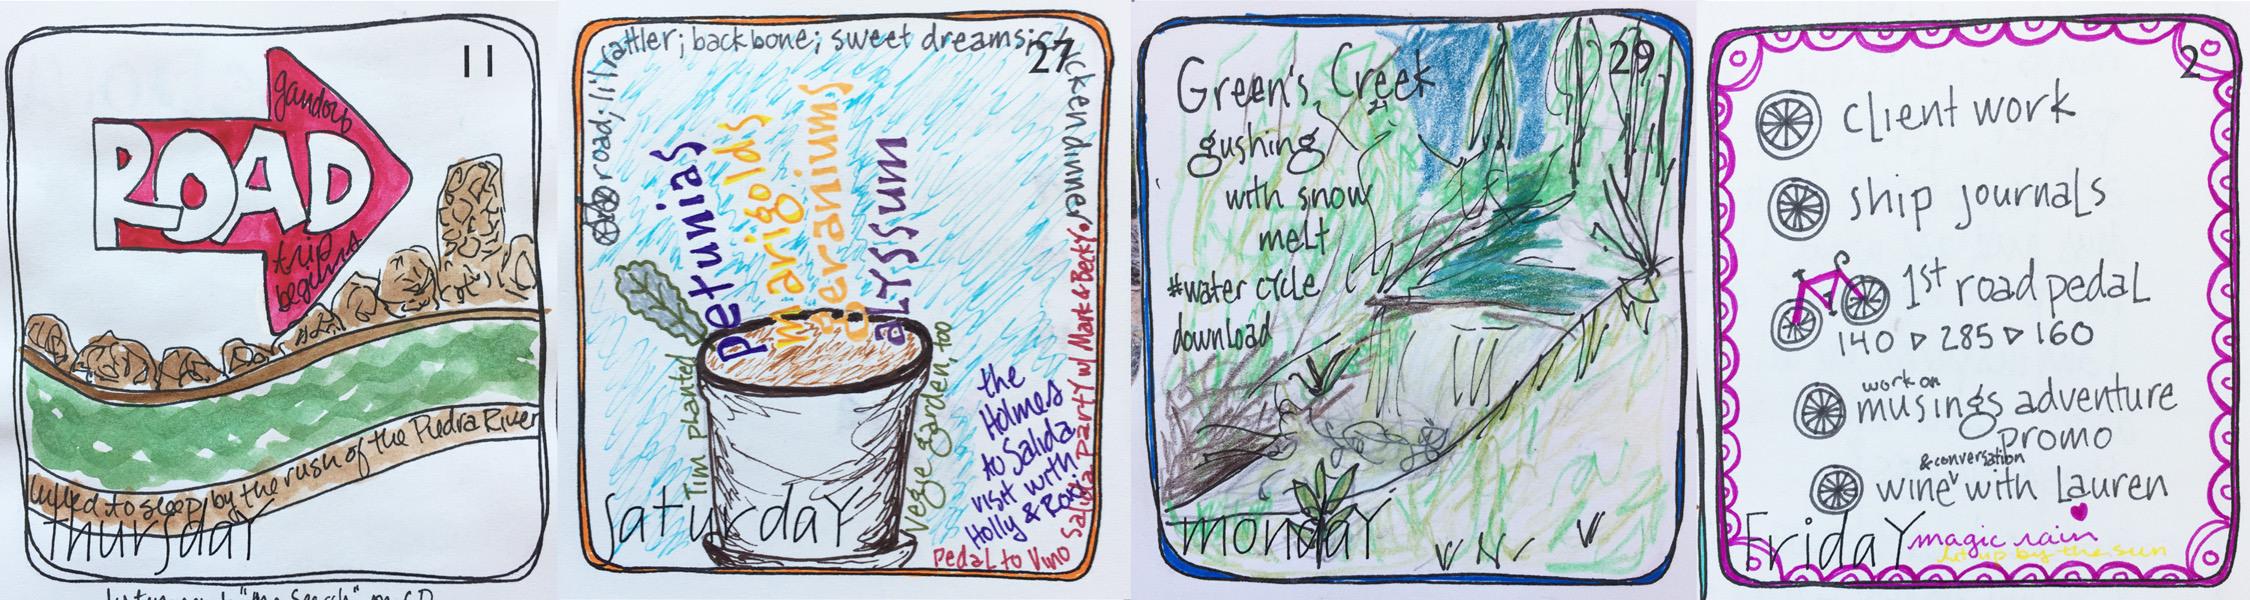 11
gandolf
ROAD
trip
begins
lulled to sleep by the rush of the Piedra River
Thursday
27
road; lil' rattler; backbone; sweet dreams; chicken dinner
petunias
marigolds
geraniums
alyssum
Tim planted
vegie garden, too
the
Holmes
to Salida
visit with
Holly & Roxi
Pedal to Vino Salida Party w/ Mark & Becky
Saturday
29
Green's Creek
gushing
with snow
melt
#water cycle
download
monday
2
client work
ship journals
1st road pedal
140 ▷ 285 ▷ 160
work on
musings adventure
promo
& conversation
wine with Lauren
magic rain
lit up by the sun
Friday